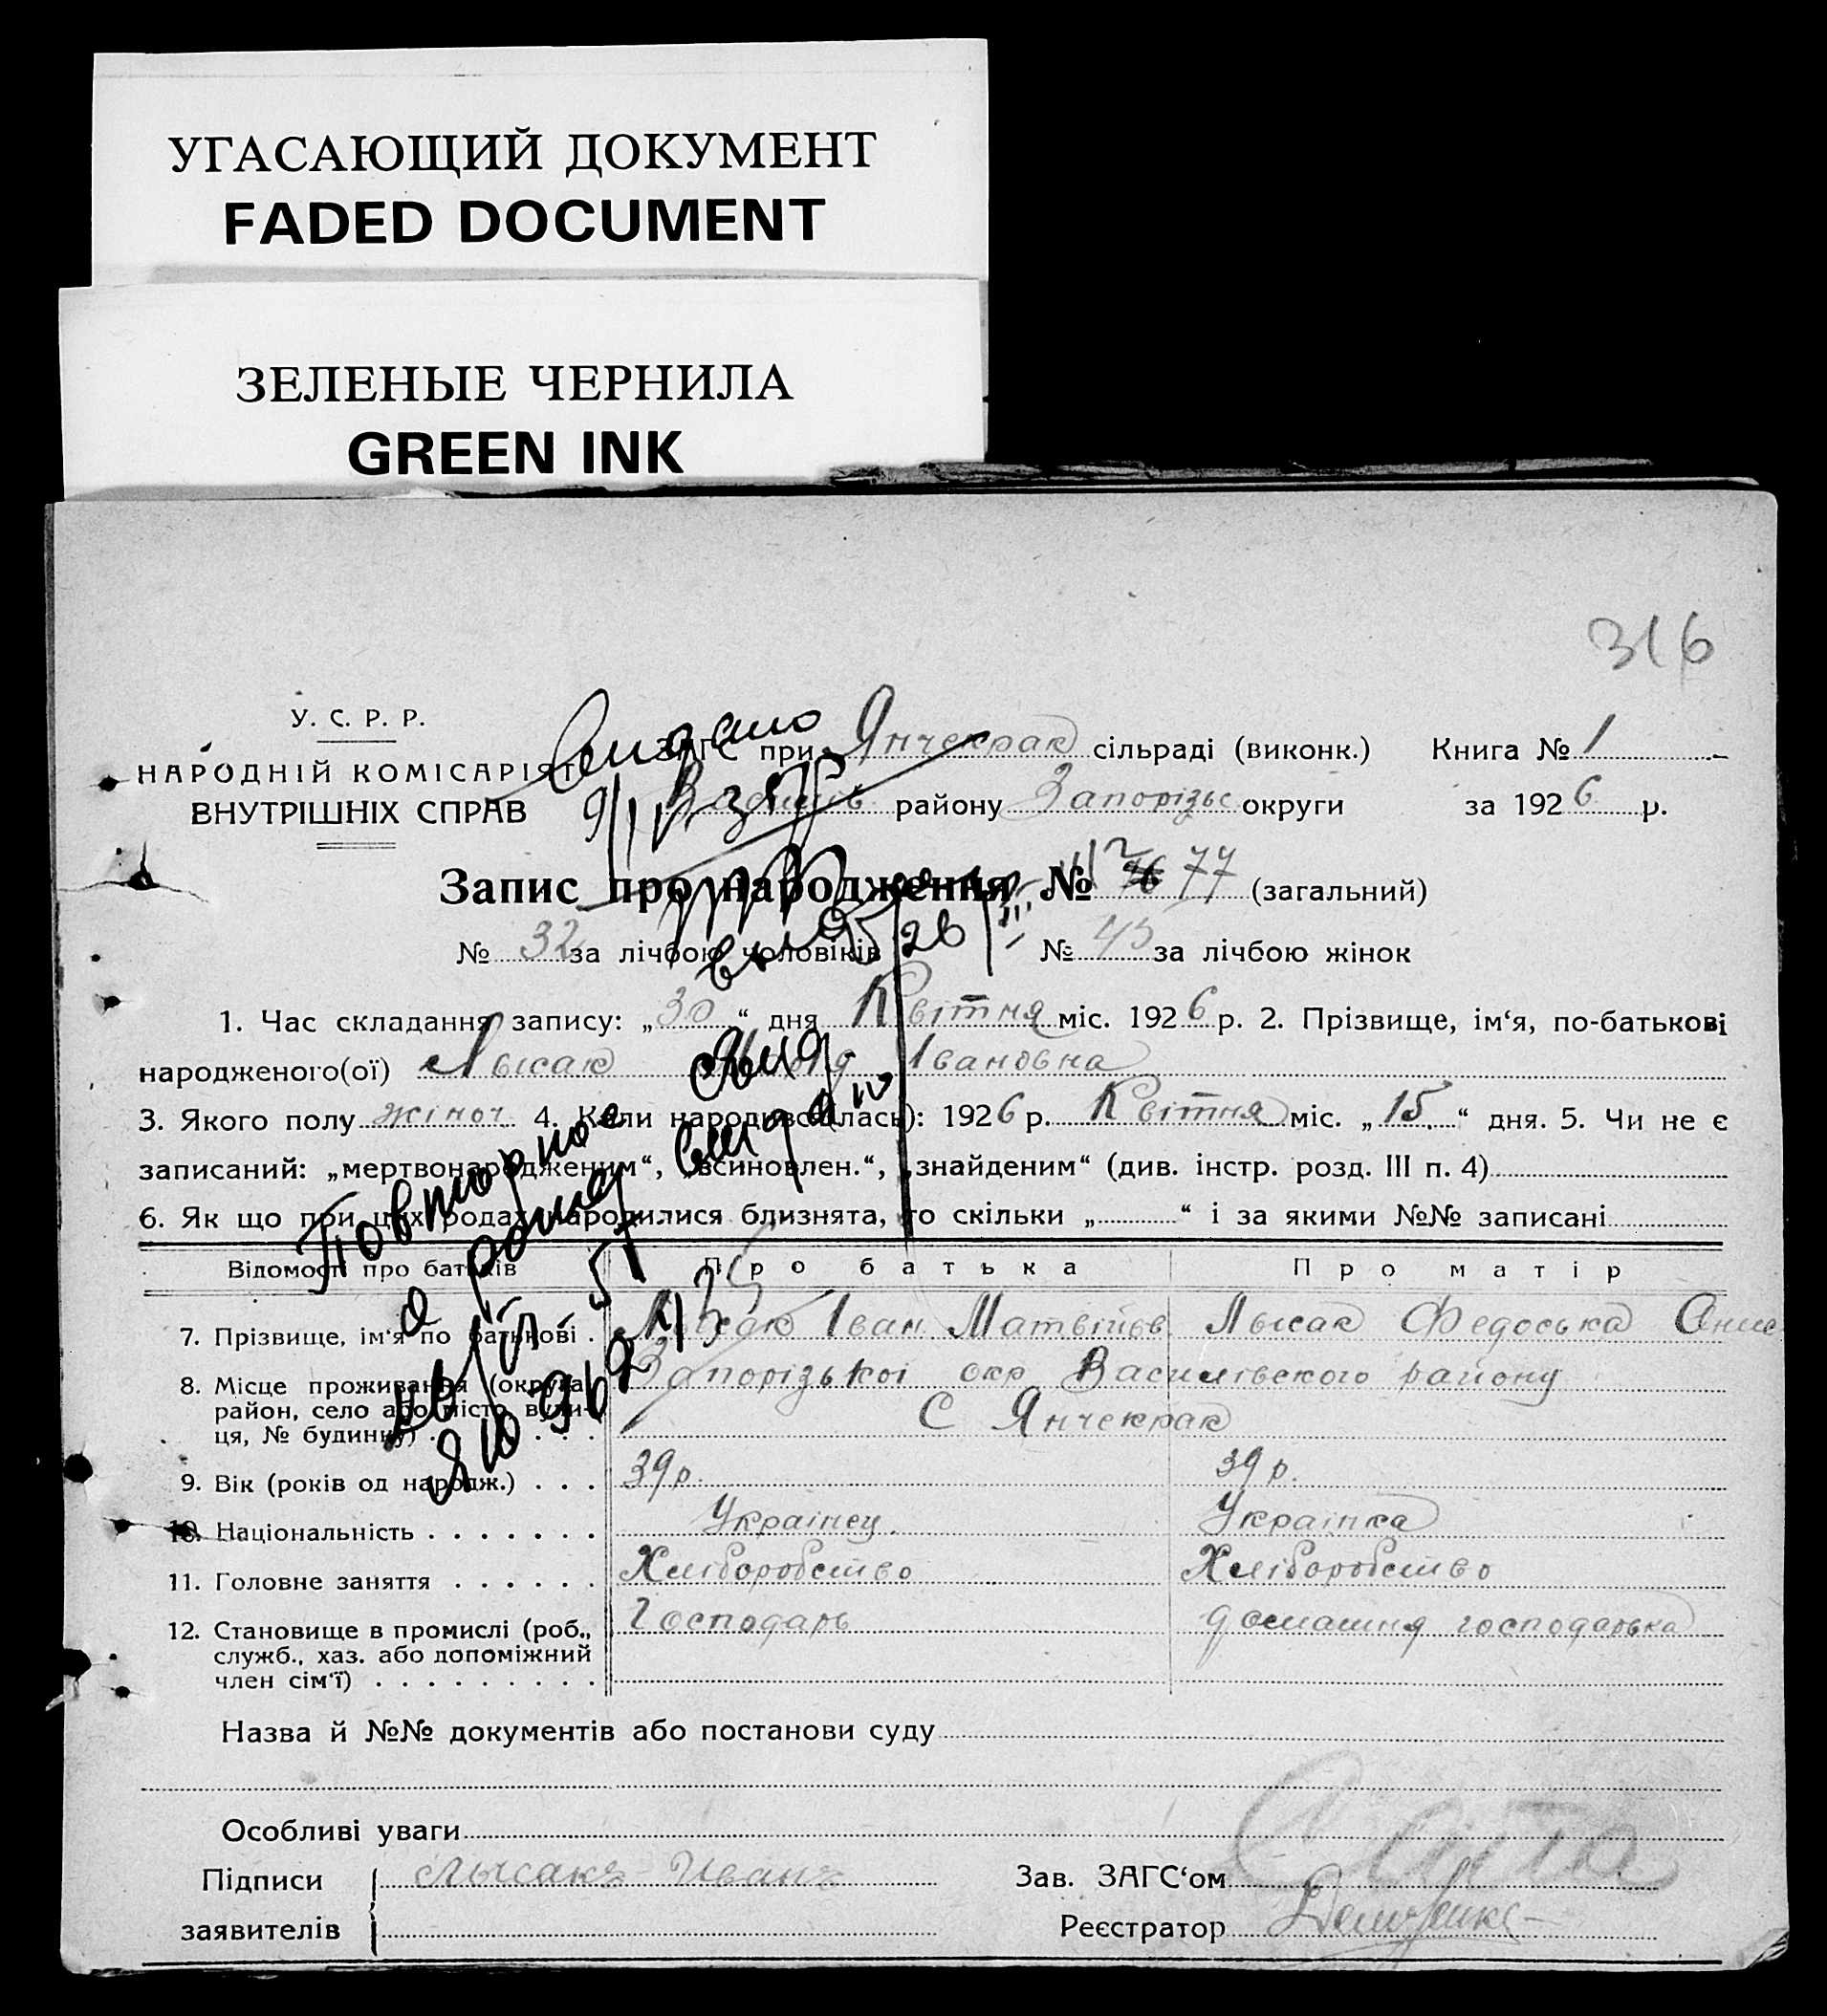 УГАСАЮЩИЙ ДОКУМЕНТ
FADED DOCUMENT
ЗЕЛЕНЫЕ ЧЕРНИЛА
GREEN INK
316
У. С. Р. Р.
НАРОДНІЙ КОМІСАРІЯТ
ВНУТРІШНІХ СПРАВ
ЗАГС при Янчекрак сільраді (виконк.) Книга № 1
району Запорізьс округи за 1926 р.
Запис про народження № 77 (загальний)
№ 32 за лічбою чоловіків № 45 за лічбою жінок
1. Час складання запису: „30“ дня Квітня міс. 1926 р. 2. Прізвище, ім‘я, по-батькові
народженого(ої) Лысак Івановна
3. Якого полу жіноч 4. Коли народився(лась): 1926 р. Квітня міс. „15“ дня. 5. Чи не є
записаний: „мертвонародженим“, „всиновлен.“, „знайденим“ (див. інстр. розд. III п. 4)
6. Як що при цих родах народилися близнята, то скільки „ “ і за якими №№ записані
Повторное свид
о рожд выдано
Відомості про батьків Про батька Про матір
7. Прізвище, ім‘я по батькові . Лысак Іван Матвійов Лысак Федоська Анис
8. Місце проживання (округа, Запорізькоі окр Василівского району
район, село або місто, вули- С Янчекрак
ця, № будинку) . . . . .
9. Вік (років од народж.) . . . 39 р. 39 р.
10. Національність . . . . . . . Украінец Украінка
11. Головне заняття . . . . . . Хліборобство Хліборобство
12. Становище в промислі (роб., Господарь домашня господарька
служб., хаз. або допоміжний
член сім‘ї) . . . . . . . . .
Назва й №№ документів або постанови суду
Особливі уваги
Підписи Лысакъ Иванъ Зав. ЗАГС‘ом
заявителів Реєстратор